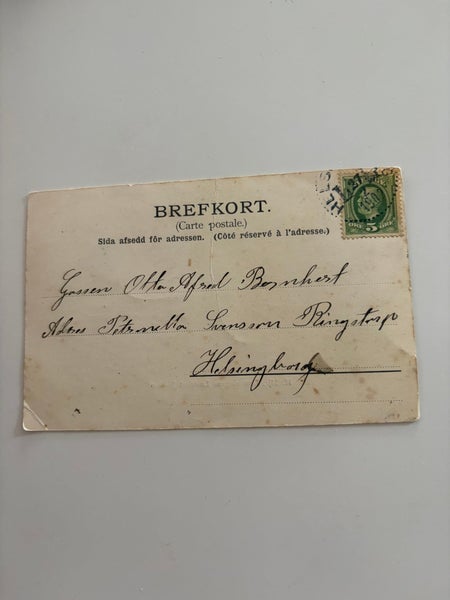 BREFKORT.
(Carte postale.)
Sida afsedd för adressen. (Côté réservé à l'adresse.)
ÖRE 5 ÖRE
Gossen Otto Alfred Bernhert
Adres Petronella Svensson Ringstorp
Helsingborg